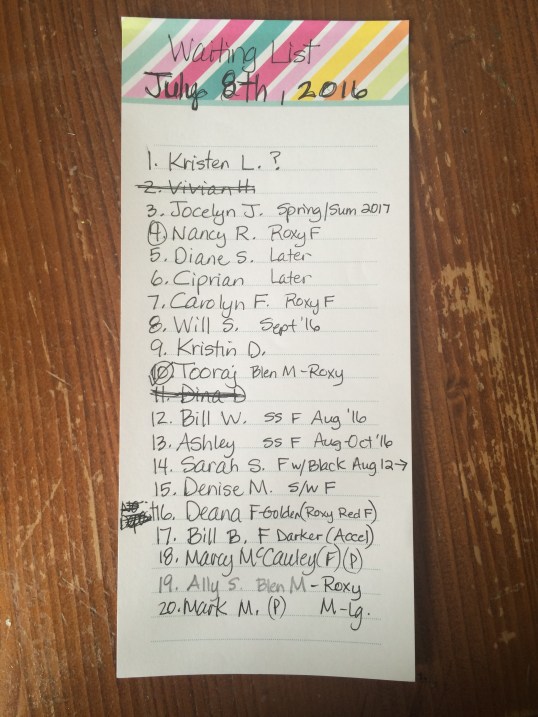 Waiting List
July 8th, 2016
1. Kristen L. ?
2. Vivian H
3. Jocelyn J. Spring/Sum 2017
4. Nancy R. Roxy F
5. Diane S. Later
6. Ciprian Later
7. Carolyn F. Roxy F
8. Will S. Sept '16
9. Kristin D.
10. Tooraj Blen M - Roxy
11. Dina D
12. Bill W. SS F Aug '16
13. Ashley SS F Aug-Oct '16
14. Sarah S. F w/Black Aug 12→
15. Denise M. S/W F
16. Deana F-Golden (Roxy Red F)
17. Bill B. F Darker (Accel)
18. Marcy McCauley (F) (P)
19. Ally S. Blen M - Roxy
20. Mark M. (P) M-Lg.